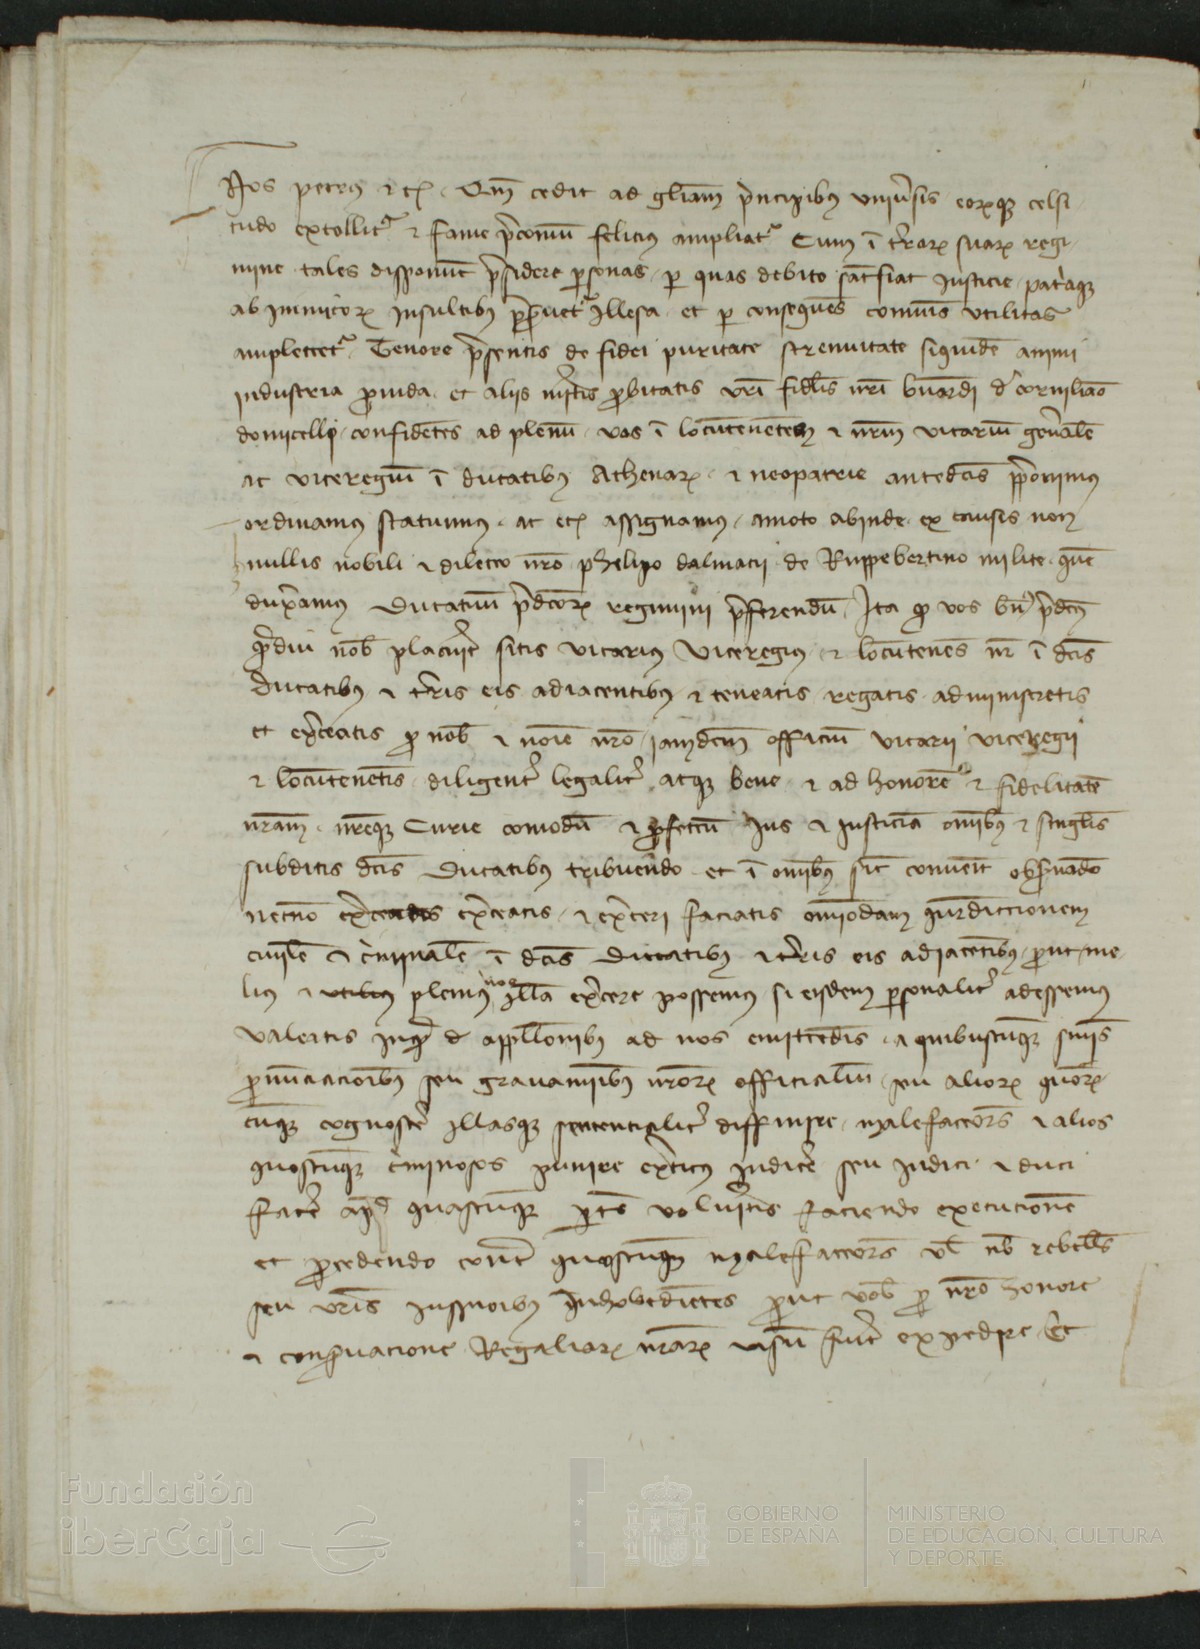 Nos petrus et cetera. Qm cedit ad gliam principibus univsis eorumque celsi
tudo extollitur et fame preconium felicius ampliatur Cum in terrarum suarum regi
mine tales disponunt presidere personas per quas debito satisfiat Justicie patriaque
ab inimicorum insultibus preservetur Illesa et per consequens comunis utilitas
amplectetur Tenore presentis de fidei puritate strenuitate siquidem animi
industria provida et aliis meritis probitatis vestri fidelis nostri bernardi de corniliano
domicelli confidentes ad plenum vos in locumtenentem et nostrum vicarium generalem
ac viceregium in ducatibus Athenarum et neopatrie antedictis preponimus
ordinamus statuimus ac etiam assignamus amoto abinde ex causis non
nullis nobili et dilecto nostro phelipo dalmacii de Ruppebertino milite quem
duxeramus Ducatuum predictorum regimini preferendum Ita quod vos bernardus predictus
quamdiu nobis placuerit sitis vicarius Viceregius et locumtenens noster in dictis
Ducatibus et terris eis adiacentibus et teneatis regatis administretis
et exerceatis pro nobis et nomine nostro iamdictum officium vicarii viceregii
et locumtenentis diligenter legaliter atque bene et ad honorem et fidelitatem
nostram nostreque Curie comodum et profectum Jus et Justiciam omnibus et singulis
subditis dictis Ducatibus tribuendo et in omnibus sicut convenit observando
necnon exerceatis exerceatis et exerceri faciatis omnimodam iurisdiccionem
civilem et criminalem in dictis Ducatibus et terris eis adiacentibus prout me
lius et utilius plenius nos Illam exercere possemus si eisdem personaliter adessemus
valeatis inquam de appellacionibus ad nos emittendis a quibuscumque sentenciis
pronunciacionibus seu gravaminibus nostrorum officialium seu aliorum quorum
cumque cognoscere Illasque sentencialiter diffinire malefactores et alios
quoscumque criminosos punire Judicere seu Judici et duci
facere quascumque volueritis faciendo execucionem
et procedendo contra quoscumque malefactores vel nobis rebelles
seu vestris Jussionibus Inhobedientes prout vobis pro nostro honore
et conservacione Regaliarum nostrarum visum fuerit expedire Et
Fundación
iberCaja
GOBIERNO
DE ESPAÑA
MINISTERIO
DE EDUCACIÓN, CULTURA
Y DEPORTE